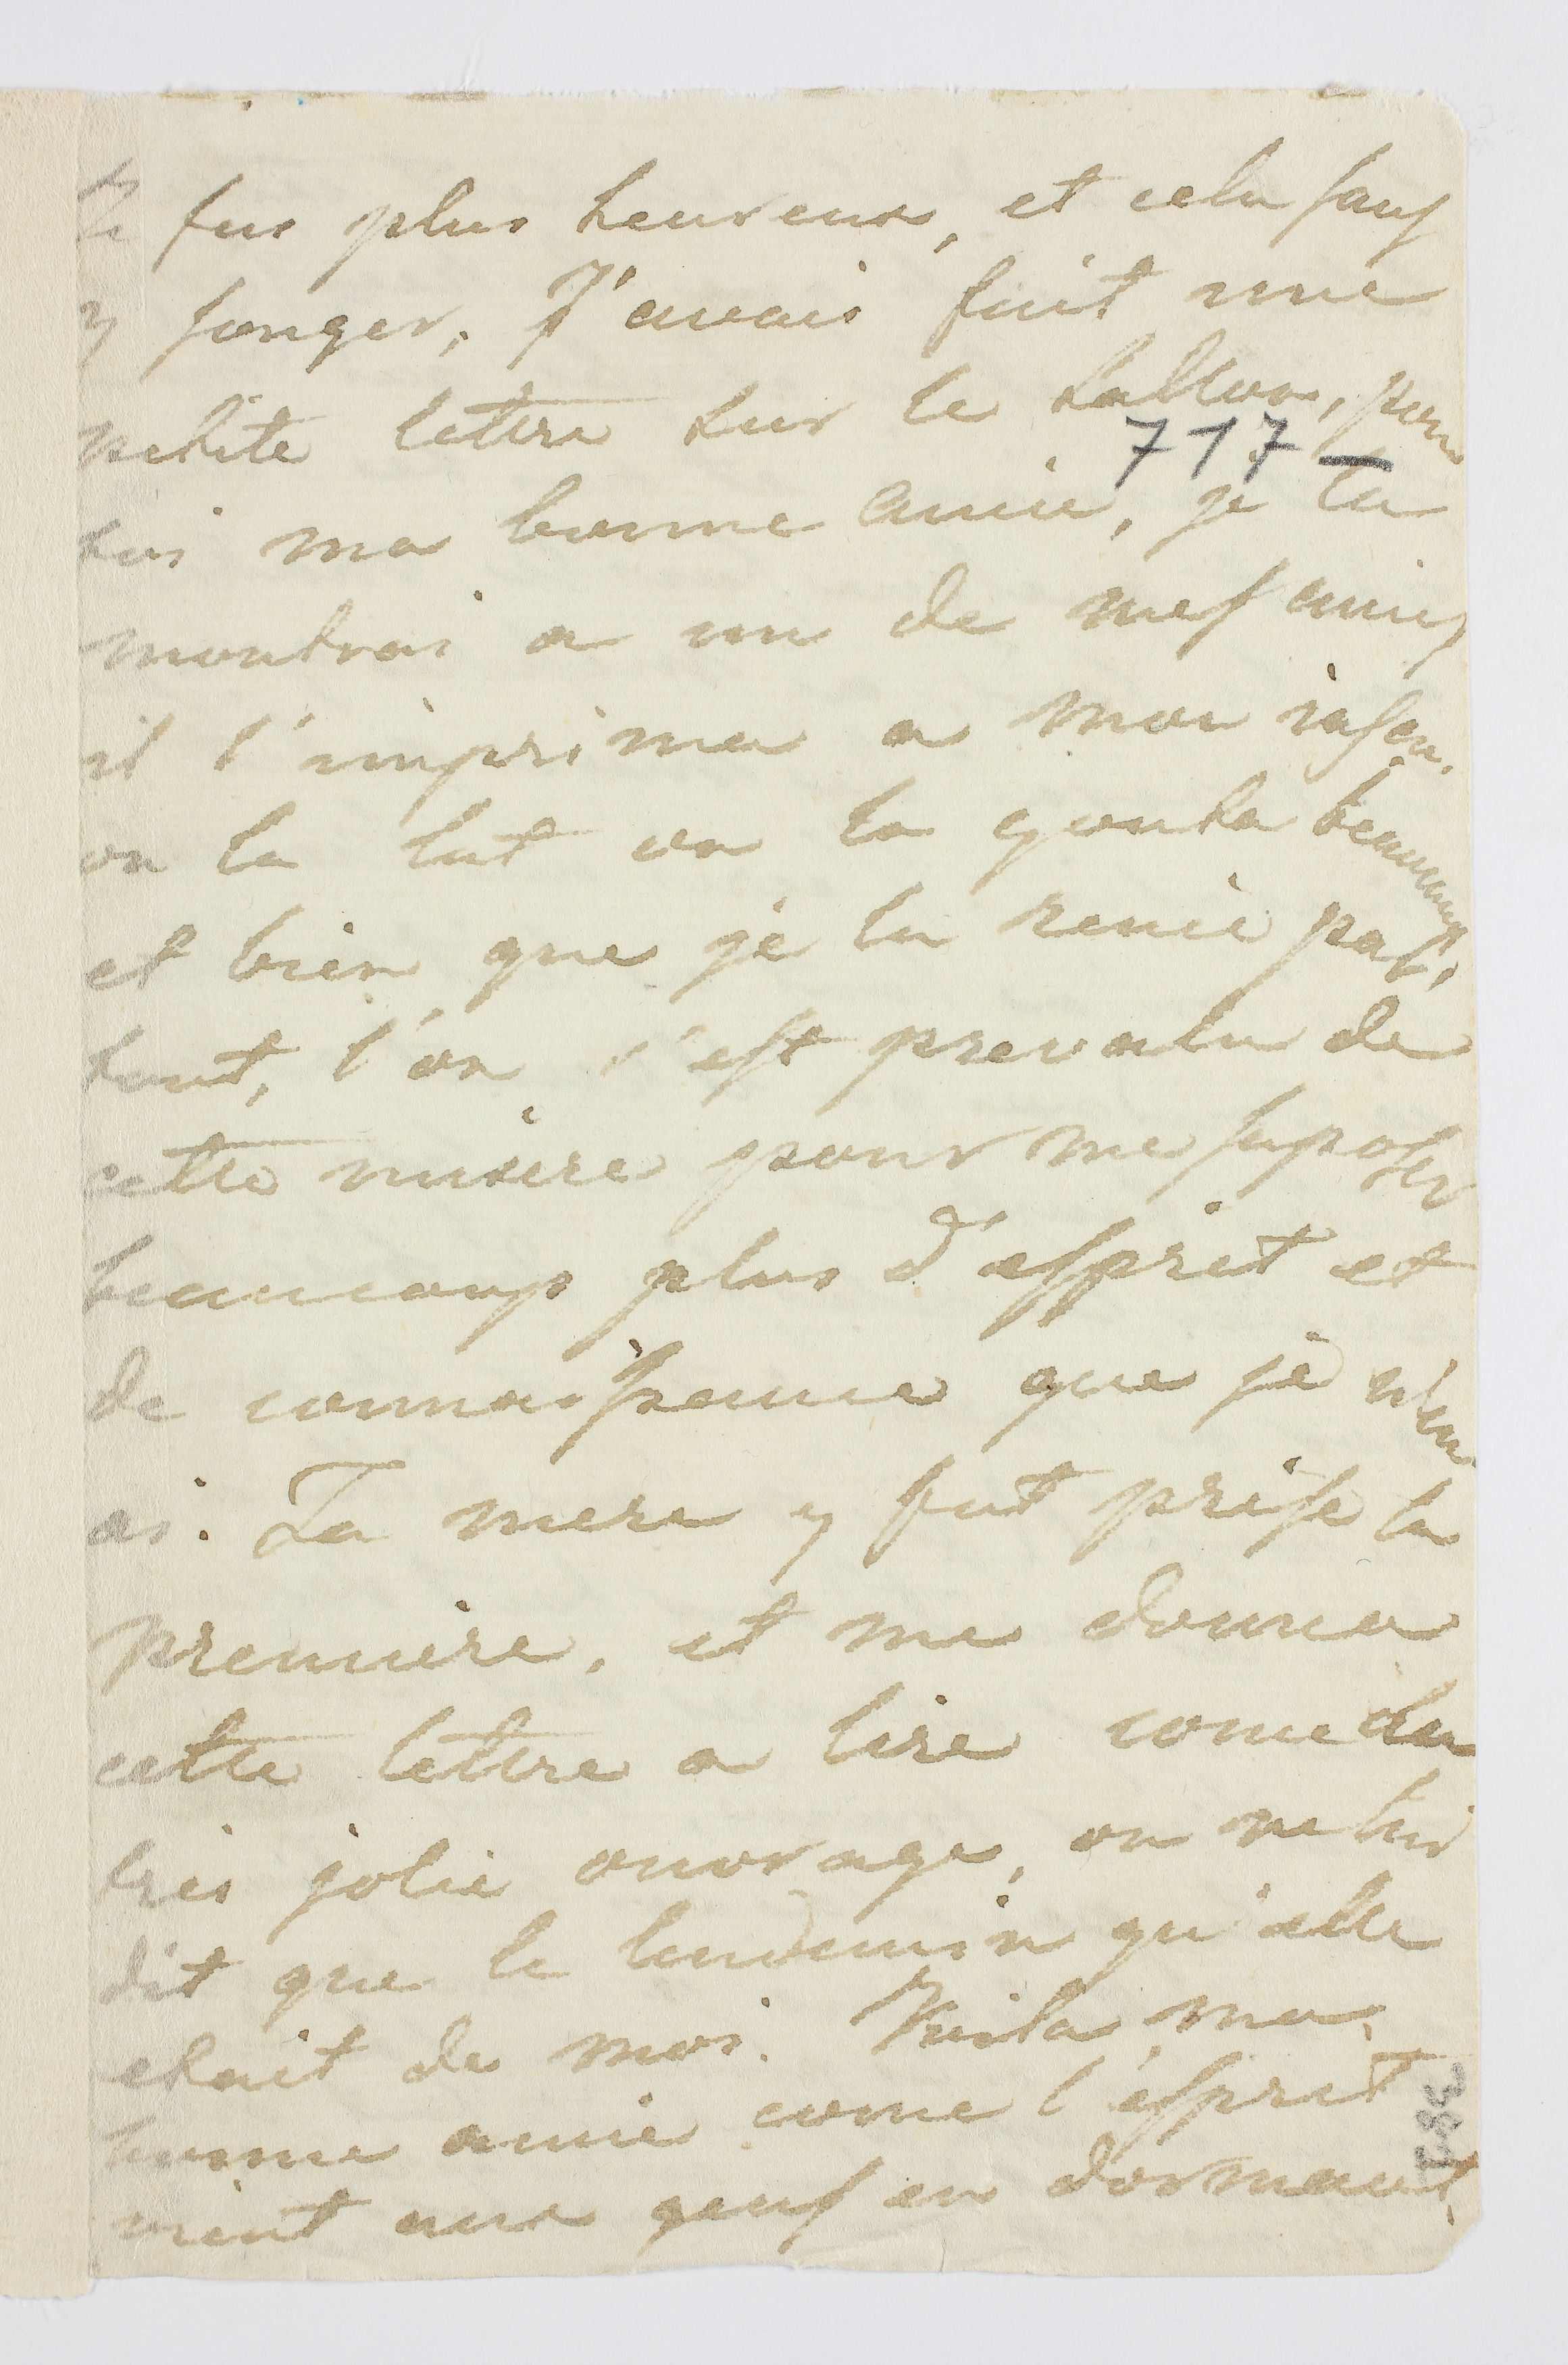 Je fus plus heureux, et cela sans
y songer, J'avais fait une
petite lettre sur le ballon, pour
toi ma bonne amie, je la
717 —
montrai a un de mes amis
il l'imprima a mon insçu.
on la lut on la gouta beaucoup
et bien que je la renie par,
tout, l'on s'est prevalu de
cette misere pour me suposer
beaucoup plus d'esprit et
de connaissance que je n'en
ai. Ta mere y fut prise la
premiere, et me donna
cette lettre a lire come un
très jolie ouvrage, on ne lui
dit que le lendemin qu'elle
etait de moi. Voila, ma,
bonne amie come l'esprit
vient aux gens en dormant,